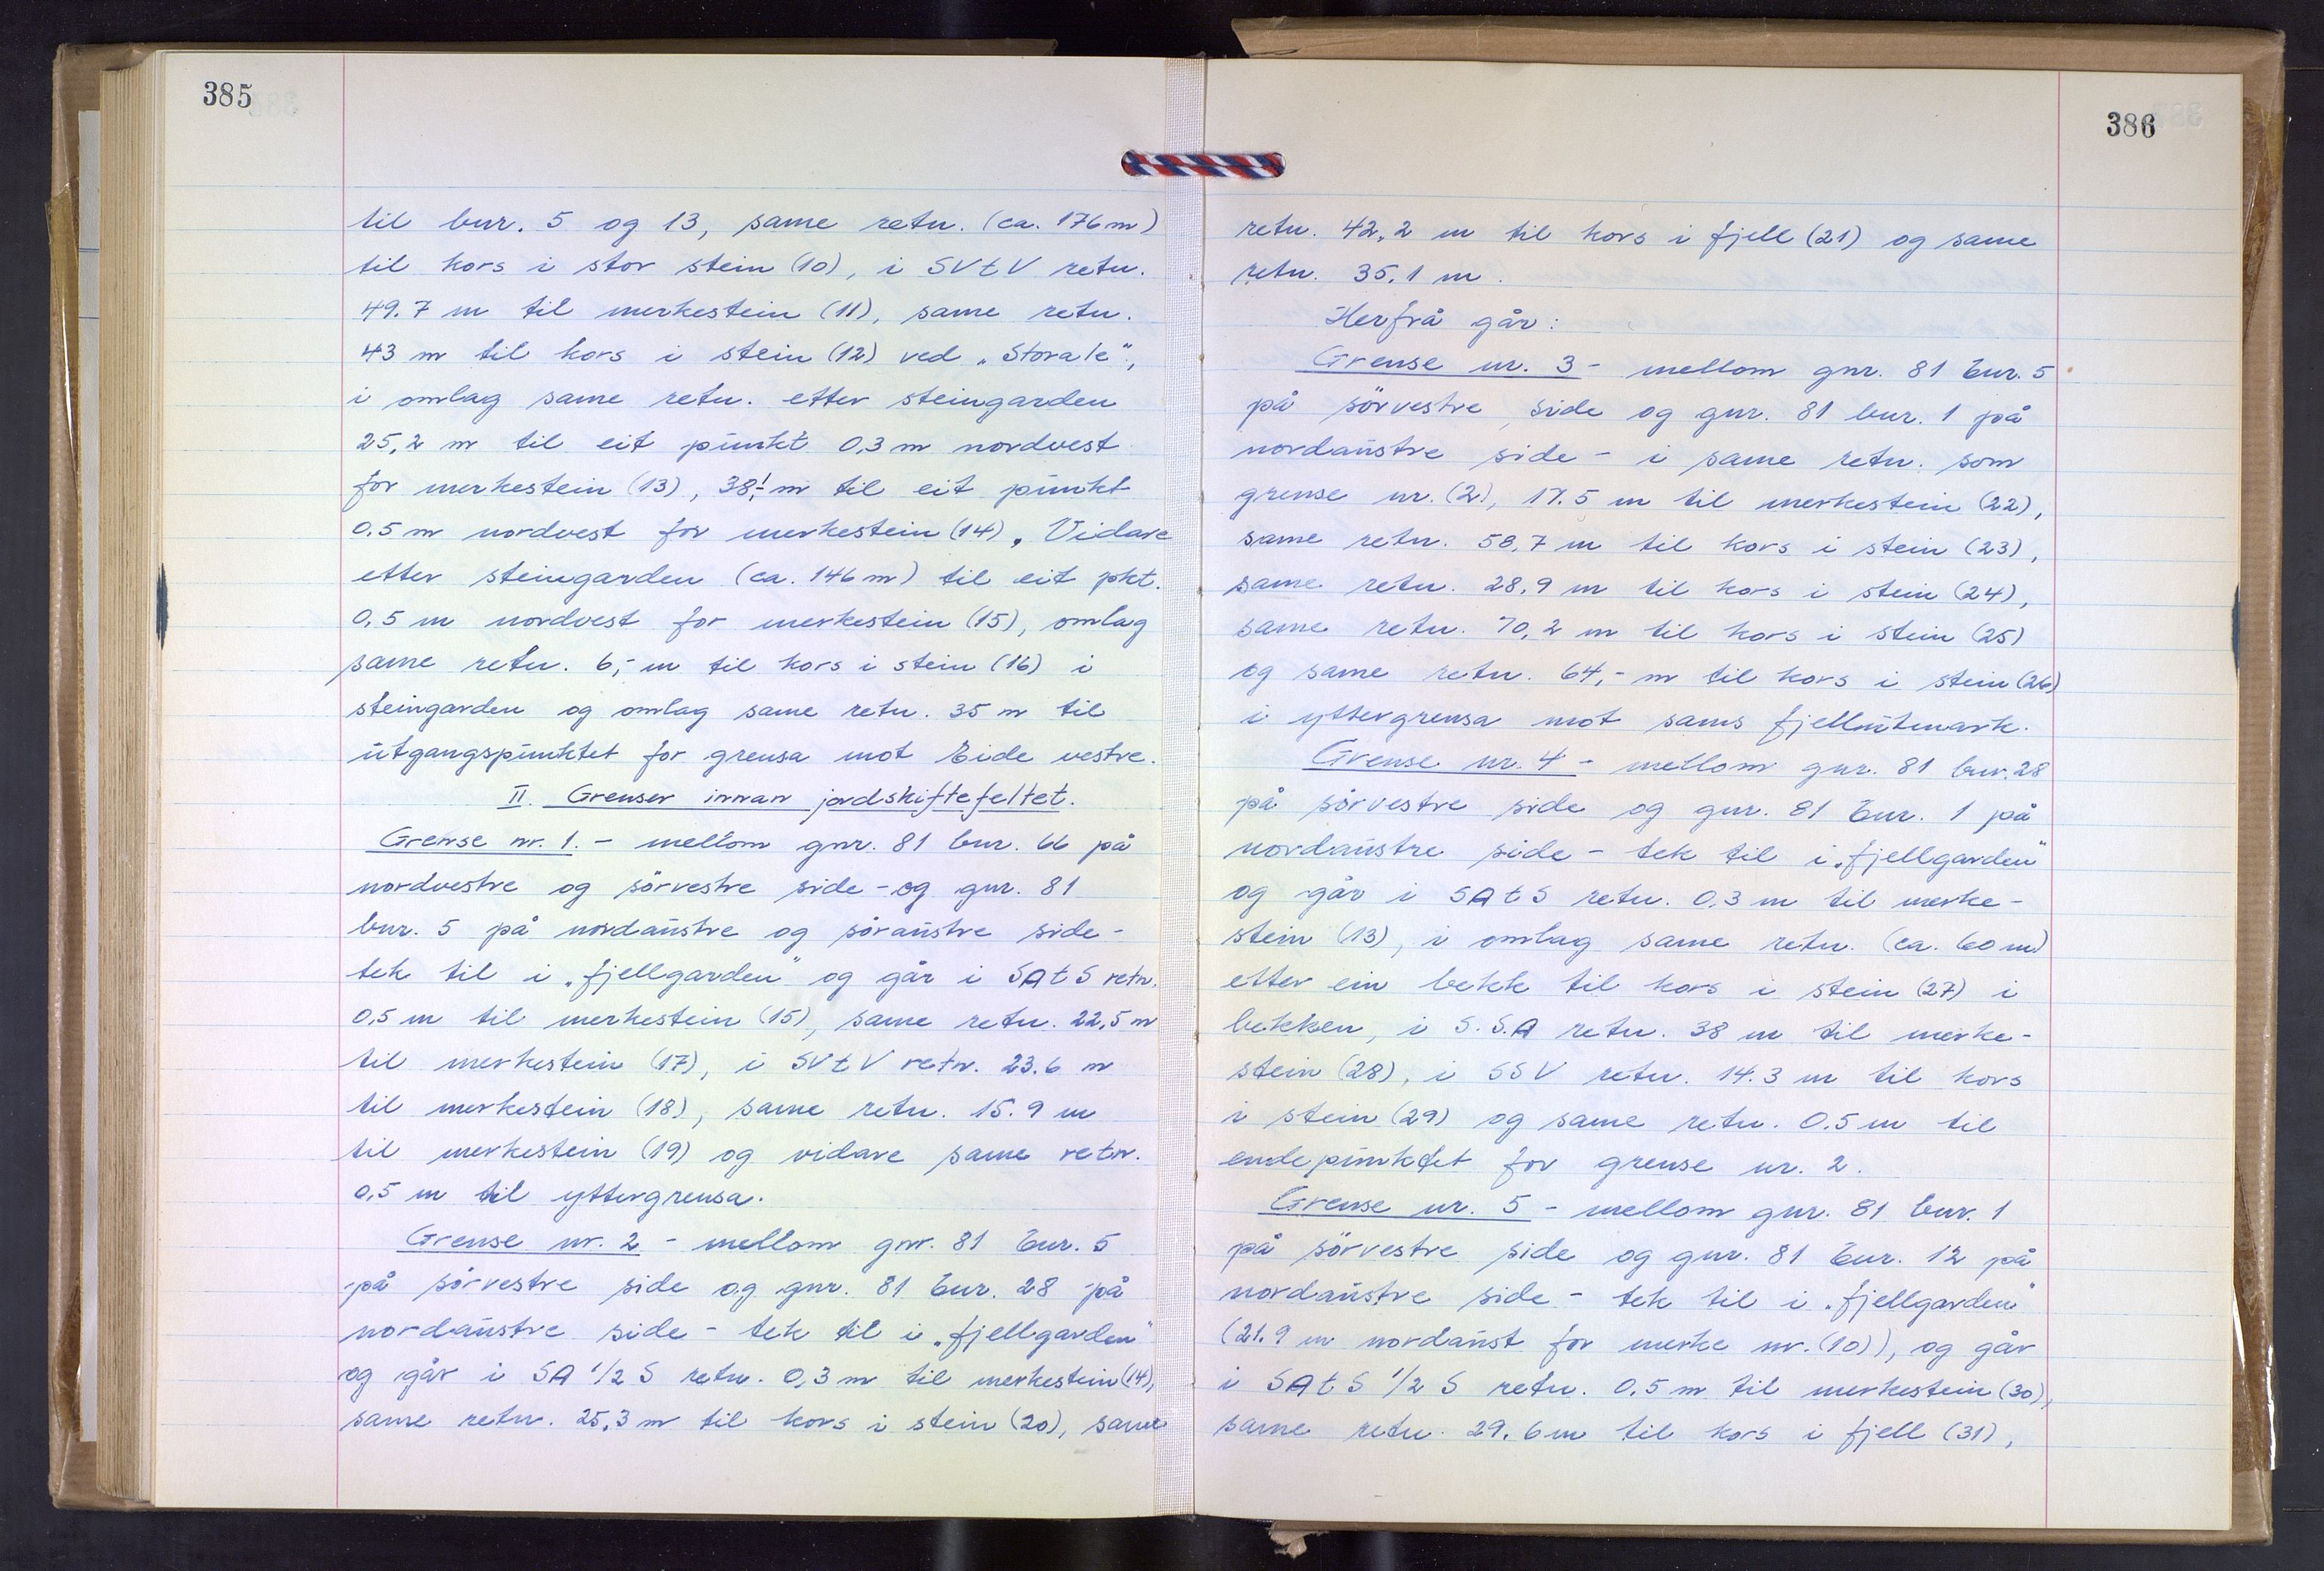 385
til bnr. 5 og 13, same retn. (ca. 176 m)
til kors i stor stein (10), i SVtV retn.
49.7 m til merkestein (11), same retn.
43 m til kors i stein (12) ved „Storale",
i omlag same retn. etter steingarden
25,2 m til eit punkt 0,3 m nordvest
for merkestein (13), 38,- m til eit punkt
0.5 m nordvest for merkestein (14). Vidare
etter steingarden (ca. 146 m) til eit pkt.
0,5 m nordvest for merkestein (15), omlag
same retn. 6,- m til kors i stein (16) i
steingarden og omlag same retn. 35 m til
utgangspunktet for grensa mot Eide vestre.
II. Grenser innan jordskiftefeltet.
Grense nr. 1. - mellom gnr. 81 bnr. 66 på
nordvestre og sörvestre side - og gnr. 81
bnr. 5 på nordaustre og söraustre side -
tek til i „fjellgarden" og går i SAtS retn.
0,5 m til merkestein (15), same retn. 22,5 m
til merkestein (17), i SVtV retn. 23.6 m
til merkestein (18), same retn. 15.9 m
til merkestein (19) og vidare same retn.
0,5 m til yttergrensa.
Grense nr. 2 - mellom gnr. 81 bnr. 5
på sörvestre side og gnr. 81 bnr. 28 på
nordaustre side - tek til i „fjellgarden"
og går i SA 1/2 S retn. 0,3 m til merkestein (14),
same retn. 25,3 m til kors i stein (20), same
386
retn. 42,2 m til kors i fjell (21) og same
retn. 35,1 m.
Herfrå går:
Grense nr. 3 - mellom gnr. 81 bnr. 5
på sörvestre side og gnr. 81 bnr. 1 på
nordaustre side - i same retn. som
grense nr. (2), 17.5 m til merkestein (22),
same retn. 58,7 m til kors i stein (23),
same retn. 28,9 m til kors i stein (24),
same retn. 70,2 m til kors i stein (25)
og same retn. 64,- m til kors i stein (26)
i yttergrensa mot sams fjellutmark.
Grense nr. 4 - mellom gnr. 81 bnr. 28
på sörvestre side og gnr. 81 bnr. 1 på
nordaustre side - tek til i „fjellgarden"
og går i SAtS retn. 0.3 m til merke-
stein (13), i omlag same retn. (ca. 60 m)
etter ein bekk til kors i stein (27) i
bekken, i S.S.A retn. 38 m til merke-
stein (28), i SSV retn. 14.3 m til kors
i stein (29) og same retn. 0.5 m til
endepunktet for grense nr. 2.
Grense nr. 5 - mellom gnr. 81 bnr. 1
på sörvestre side og gnr. 81 bnr. 12 på
nordaustre side - tek til i „fjellgarden"
(21.9 m nordaust for merke nr. (10)), og går
i SAtS 1/2 S retn. 0.5 m til merkestein (30),
same retn. 29.6 m til kors i fjell (31),